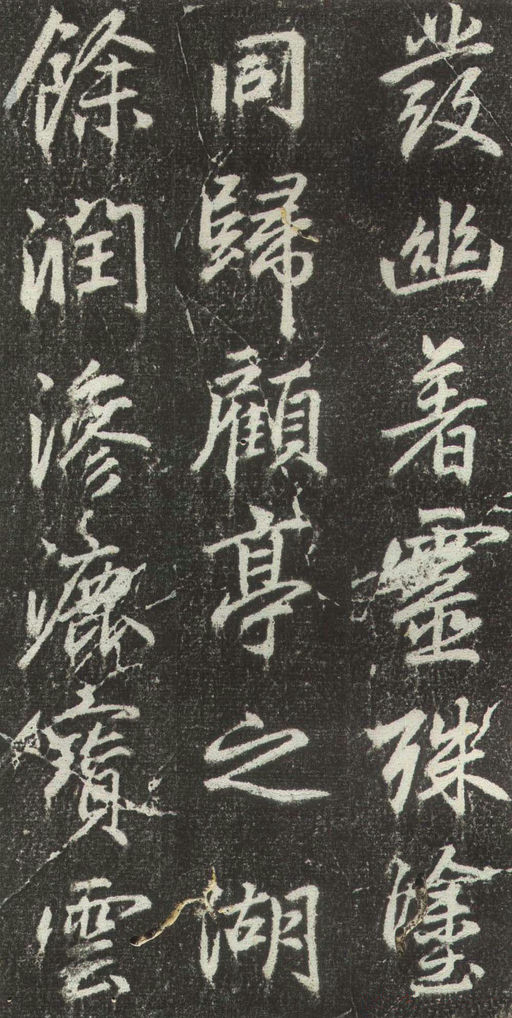 發幽著靈殊塗
同歸顧亭之湖
餘潤滲漉寶雲